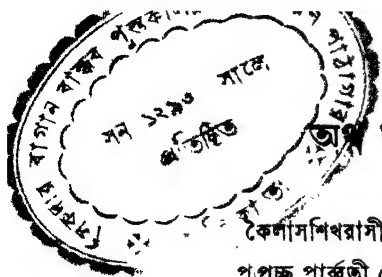 সিকদার বাগান বান্ধব পুস্তকালয়
পাঠাগার
সন ১২৯৩ সালে
প্রতিষ্ঠিত
অথ
কৈলাসশিখরাসী
পপ্রচ্ছ পার্ব্বতী